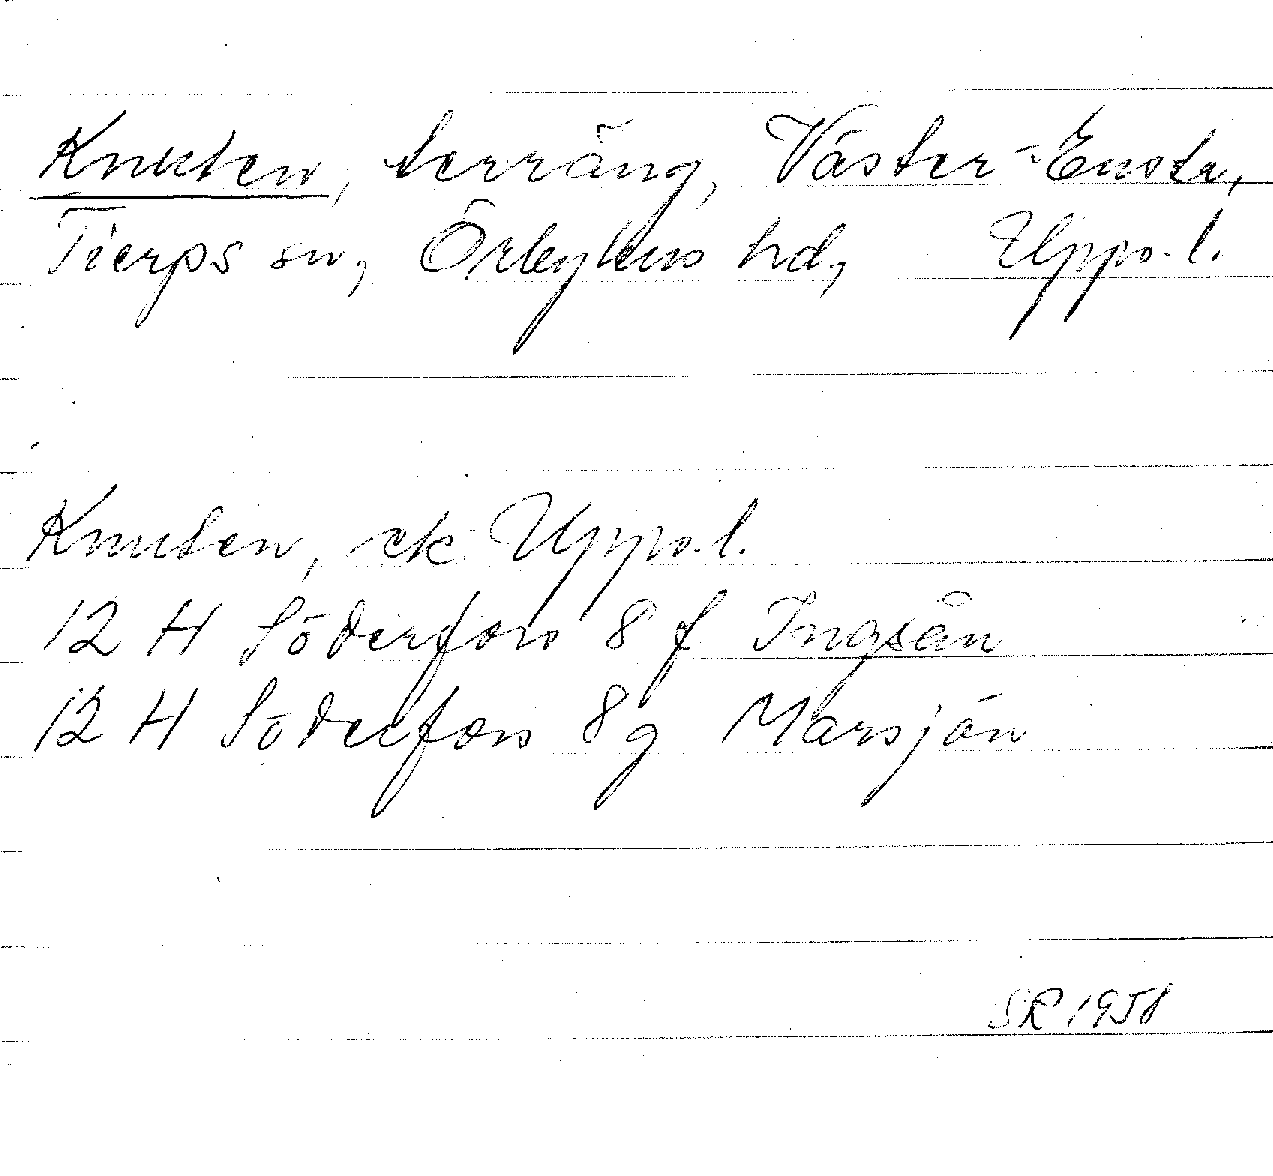 Knuten, terräng, Väster-Ensta,
Tierps sn, Örbyhus hd, Upps. l.
Knuten, ek Upps. l.
12 H Söderfors 8 f Ingsån
12 H Söderfors 8 g Marsjön
SR 1958